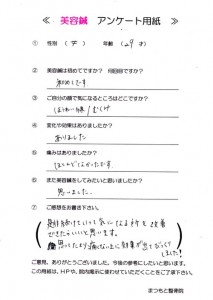 ≪ 美容鍼 アンケート用紙 ≫
① 性別 ( 女 ) 年齢 ( 29 才)
② 美容鍼は初めてですか? 何回目ですか?
初めてです
③ ご自分の顔で気になるところはどこですか?
ほうれい線/むくみ
④ 変化や効果はありましたか?
ありました
⑤ 痛みはありましたか?
ほとんどなかったです。
⑥ また美容鍼をしてみたいと思いましたか?
思いました。
⑦ ご感想をお書き下さい。
続けていって気になる所を改善
できたらいいと思います。
思ってたより痛くない上に効果が出てびっくり
しました!
ご意見、ありがとうございました。今後の参考にしたいと思います。
この用紙は、HPや、院内掲示に使わせていただくことをご了承下さい。
まつもと整骨院